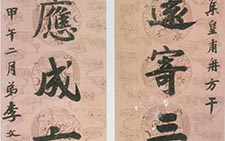 集皇甫冉方干
遠寄三
應成
甲午二月弟李文